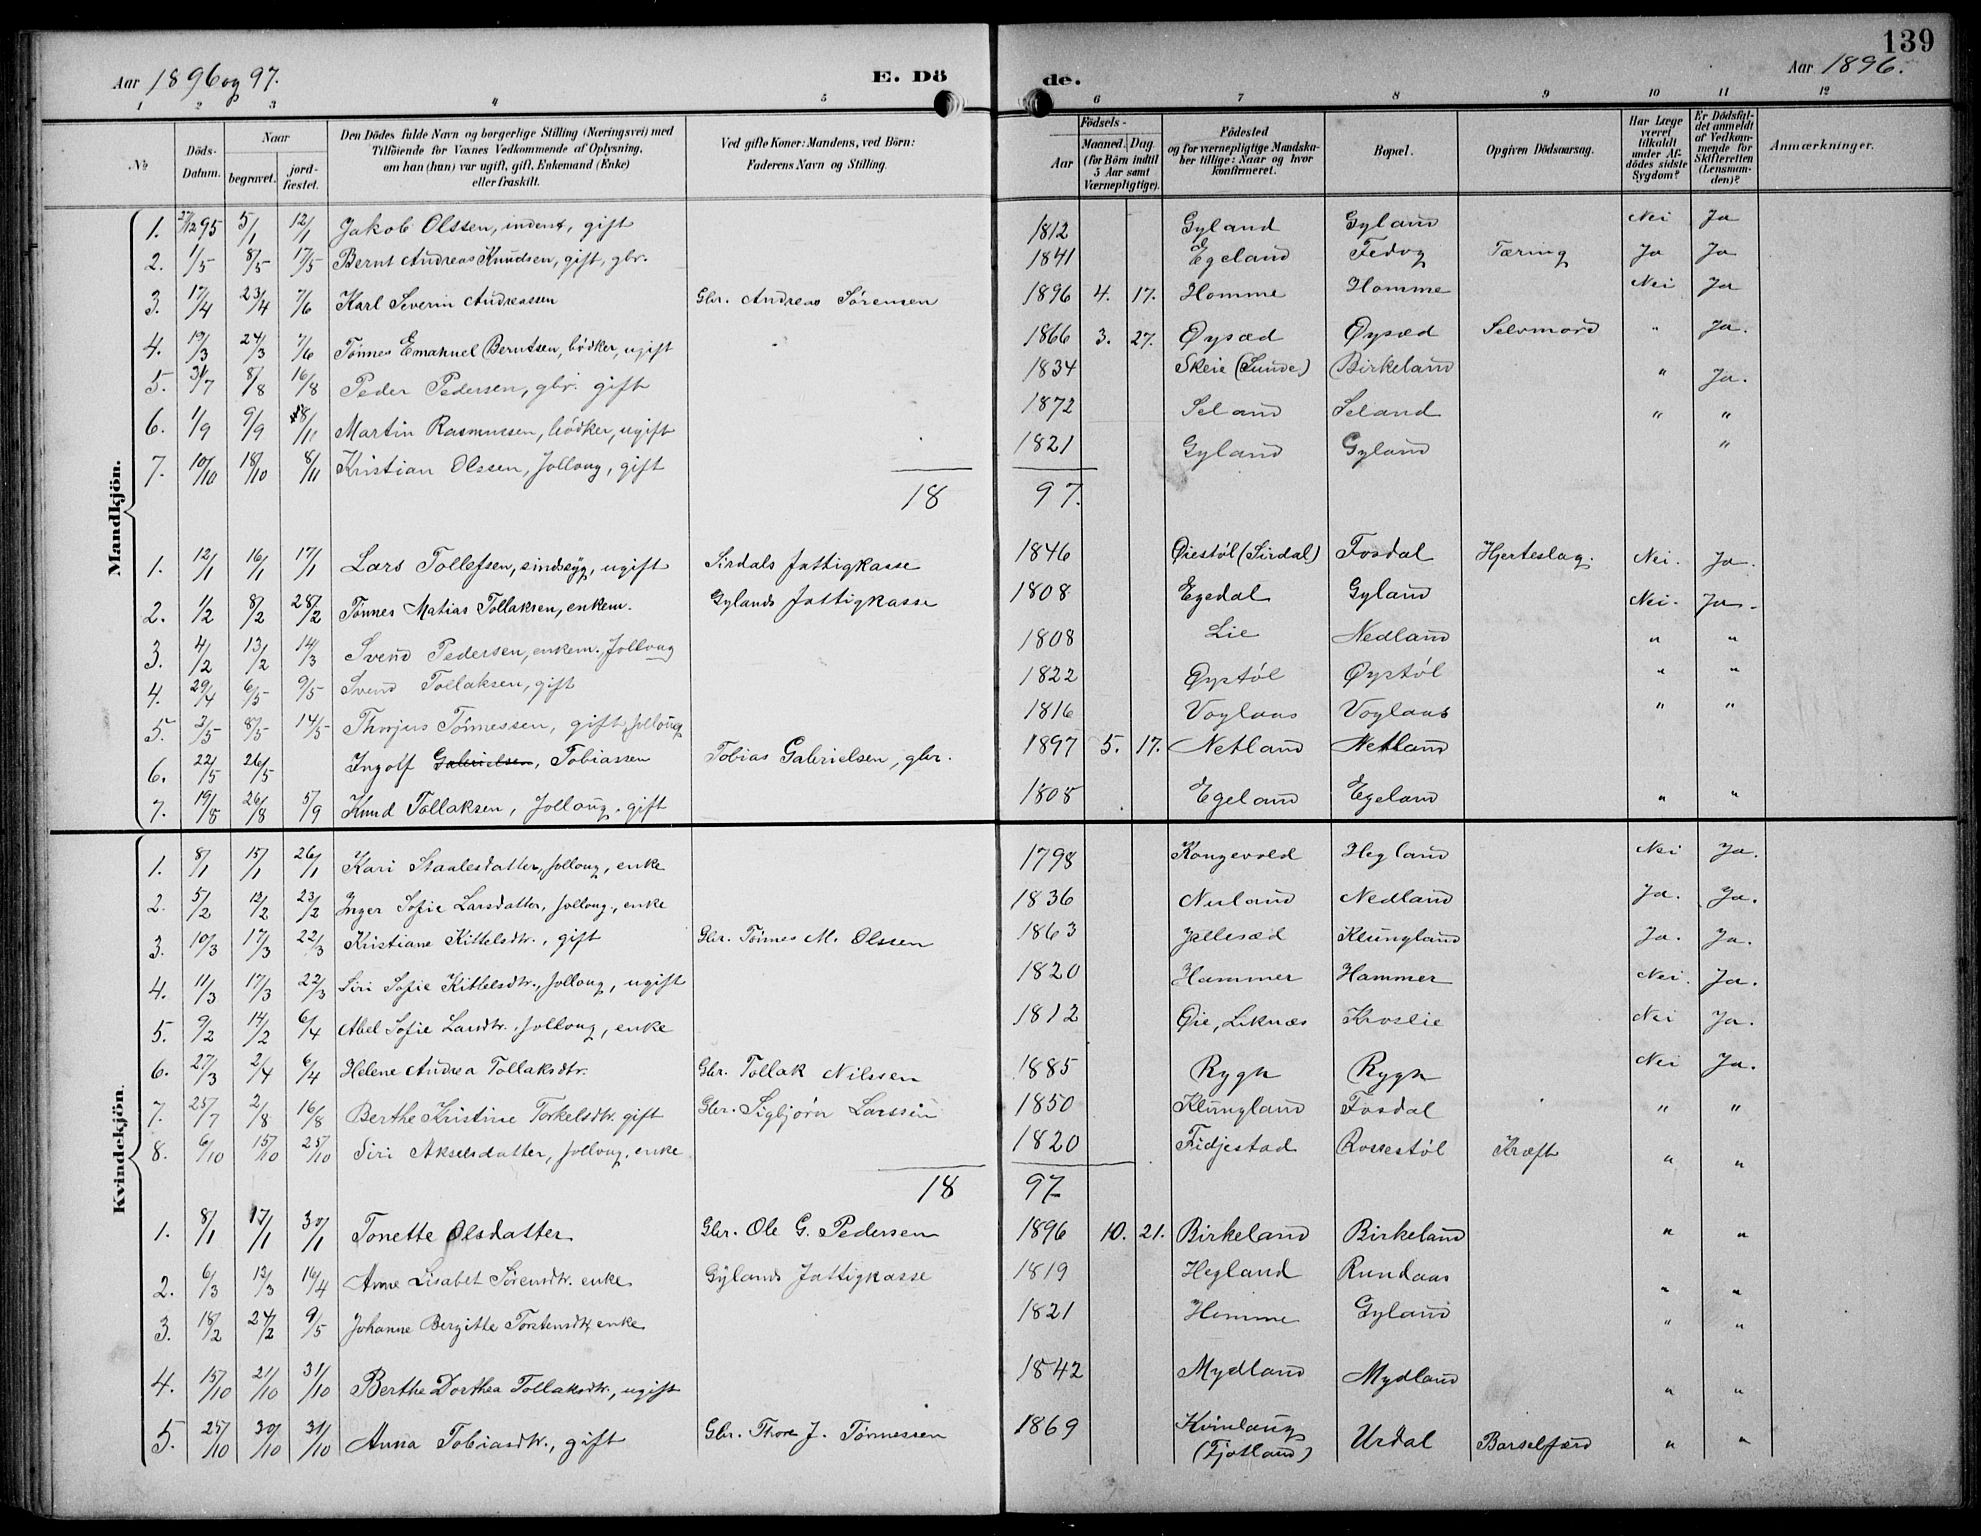 139
Aar 1896 og 97. E. Dö de. Aar 1896.
1 2 3 4 5 6 7 8 9 10 11 12
№ Döds-Datum. Naar begravet. jordfæstet. Den Dödes fulde Navn og borgerlige Stilling (Næringsvei) med Tilföiende for Voxnes Vedkommende af Oplysning, om han (hun) var ugift, gift, Enkemand (Enke) eller fraskilt. Ved gifte Koner: Mandens, ved Börn: Faderens Navn og Stilling. Födsels- Aar Maaned. Dag (for Börn indtil 5 Aar samt Værnepligtige). Födested og for værnepligtige Mandskaber tillige: Naar og hvor konfirmeret. Bopæl. Opgiven Dödsaarsag. Har Læge været tilkaldt under Afdödes sidste Sygdom? Er Dödsfaldet anmeldt af Vedkommende for Skifteretten (Lensmanden)? Anmærkninger.
Mandkjön.
1. 27/12 95 5/1 12/1 Jakob Olssen, inderst, gift 1812 Gyland Gyland Nei Ja
2. 1/5 8/5 17/5 Bernt Andreas Knudsen, gift, gbr. 1841 Egeland Fedog Tæring Ja Ja
3. 17/4 23/4 7/6 Karl Severin Andreassen Gbr. Andreas Sørensen 1896 4. 17. Homme Homme Nei Ja
4. 19/3 24/3 7/6 Tønnes Emanuel Berntsen, bødker, ugift 1866 3. 27. Øysæd Øysæd Selvmord " Ja.
5. 31/7 8/8 16/8 Peder Pedersen, gbr. gift 1834 Skeie (Lunde) Birkeland " Ja.
6. 1/9 9/9 8/11 Martin Rasmussen, bødker, ugift 1872 Seland Seland " "
7. 10/10 18/10 8/11 Kristian Olssen, follaug, gift 1821 Gyland Gyland "
18 97.
1. 12/1 16/1 17/1 Lars Tollefsen, sindssyg, ugift Sirdals fattigkasse 1846 Øiestøl (Sirdal) Fosdal Hjerteslag. Nei. Ja.
2. 1/2 8/2 28/2 Tønnes Matias Tollaksen, enkem. Gylands fattigkasse 1808 Egedal Gyland Nei. Ja.
3. 4/2 13/2 14/3 Svend Pedersen, enkem. follaug 1808 Lie Nedland " "
4. 29/4 6/5 9/5 Svend Tollaksen, gift 1822 Øystøl Øystøl " "
5. 2/5 8/5 14/5 Thorjus Tønnessen, gift, follaug 1816 Voglaas Voglaas " "
6. 22/5 26/5 Ingolf Gabrielsen, Tobiassen Tobias Gabrielsen, gbr. 1897 5. 17. Netland Netland
7. 19/8 26/8 5/9 Knud Tollaksen, follaug, gift 1808 Egeland Egeland " "
Kvindekjön.
1. 8/1 15/1 26/1 Kari Staalesdatter, follaug, enke 1798 Kongevold Hegland Nei Ja.
2. 5/2 12/2 23/2 Inger Sofie Larsdatter, follaug, enke 1836 Nuland Nedland Ja. Ja.
3. 10/3 17/3 22/3 Kristiane Kittelsdtr., gift Gbr. Tønnes M. Olssen 1863 Jellesæd Klungland Ja. Ja.
4. 11/3 17/3 22/3 Siri Sofie Kittelsdtr., follaug, ugift 1820 Hammer Hammer Nei. Ja.
5. 9/2 14/2 6/4 Abel Sofie Larsdtr. follaug, enke 1812 Øie, Liknæs Kroslie Nei Ja.
6. 27/3 2/4 6/4 Helene Andrea Tollaksdtr. Gbr. Tollak Nilssen 1885 Rygh Rygh Nei Ja.
7. 25/7 2/8 16/8 Berthe Kristine Torkelsdtr. gift Gbr. Sigbjørn Larssen 1850 Klungland Fosdal " "
8. 6/10 15/10 25/10 Siri Akselsdatter, follaug, enke 1820 Fidjestad Rossestøl Kræft " "
18 97
1. 8/1 17/1 30/1 Tonette Olsdatter Gbr. Ole G. Pedersen 1896 10. 21. Birkeland Birkeland " "
2. 6/3 12/3 16/4 Anne Lisabet Sørensdtr. enke Gylands fattigkasse 1819 Hegland Rundaas " "
3. 18/2 24/2 9/5 Johanne Bergitte Torstensdtr. enke 1821 Homme Gyland " "
4. 15/10 21/10 31/10 Berthe Dorthea Tollaksdtr., ugift 1842 Mydland Mydland " "
5. 25/10 30/10 31/10 Anna Tobiasdtr., gift Gbr. Thore J. Tønnessen 1869 Kvinlaug (Fjotland) Urdal Barselfærd " "